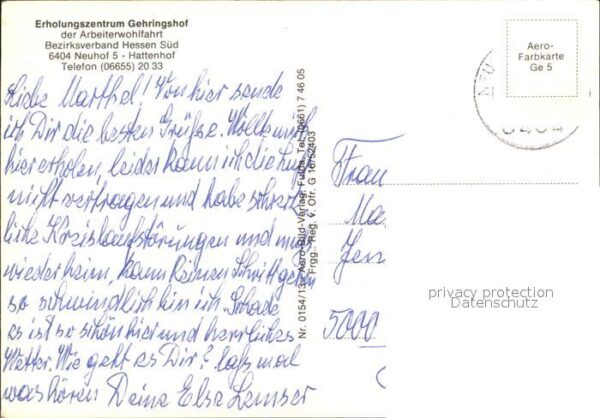 Erholungszentrum Gehringshof
der Arbeiterwohlfahrt
Bezirksverband Hessen Süd
6404 Neuhof 5 - Hattenhof
Telefon (06655) 20 33
Aero-
Farbkarte
Ge 5
Liebe Marthel! Von hier sende
ich Dir die besten Grüße. Wollte mich
hier erholen, leider kann ich die Luft
nicht vertragen und habe schreck
liche Kreislaufstörungen und muß
wieder heim, kann keinen Schritt gehen
so schwindlich bin ich. Schade
es ist so schön hier und herrliches
Wetter. Wie geht es Dir? laß mal
was hören Deine Else
Nr. 0154/13 Aero-Bild-Verlag, Fulda, Tel. (0661) 7 46 05
Frgg.: Reg. v. Ofr. G 16/52403
Frau
5000
6404
privacy protection
Datenschutz